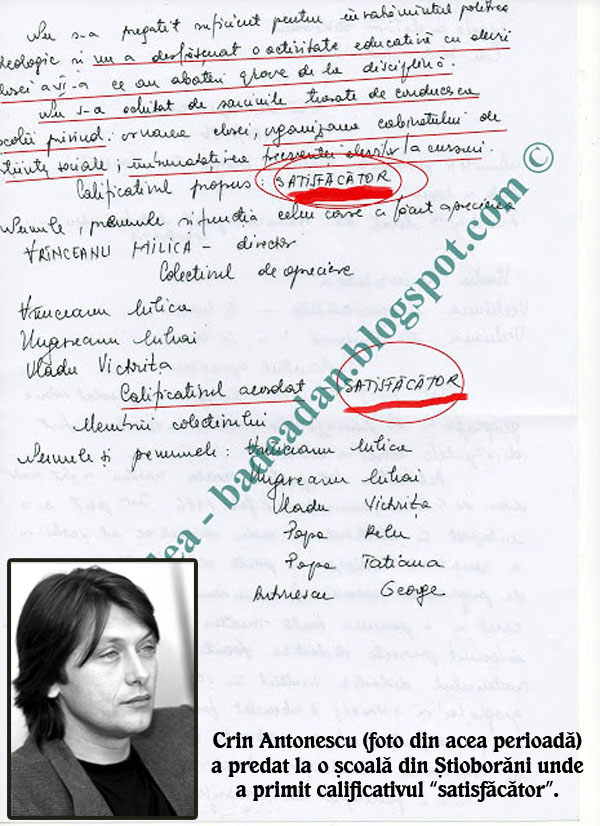 Nu s-a pregătit suficient pentru învățămîntul politico
ideologic și nu a desfășurat o activitate educativă cu elevii
clasei a VI-a ce au abateri grave de la disciplină.
Nu s-a achitat de sarcinile trasate de conducerea
școlii privind: organizarea cabinetului de
științe sociale, îmbunătățirea frecvenței elevilor la cursuri.
Calificativul propus: SATISFĂCĂTOR
Numele, prenumele și funcția celui care a făcut aprecierea
VRÎNCEANU MILICA - director
Colectivul de apreciere
Vrînceanu Milica
Ungureanu Mihai
Vladu Victrița
Calificativul acordat - SATISFĂCĂTOR
Membrii colectivului
Numele și prenumele: Vrînceanu Milica
Ungureanu Mihai
Vladu Victrița
Popa Relu
Popa Tatiana
Antonescu George
badeadan.blogspot.com ©
Crin Antonescu (foto din acea perioadă)
a predat la o școală din Știoborăni unde
a primit calificativul “satisfăcător”.